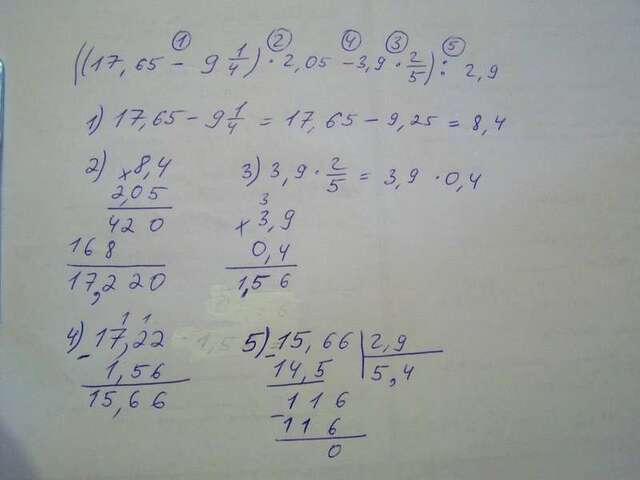 ① ② ④ ③ ⑤
((17,65 − 9 1/4) · 2,05 − 3,9 · 2/5) : 2,9
1) 17,65 − 9 1/4 = 17,65 − 9,25 = 8,4
2) × 8,4
2,05
420
168
17,220
3) 3,9 · 2/5 = 3,9 · 0,4
3
× 3,9
0,4
1,56
4) 1 1
− 17,22
1,56
15,66
5) − 15,66 | 2,9
14,5 | 5,4
− 116
116
0